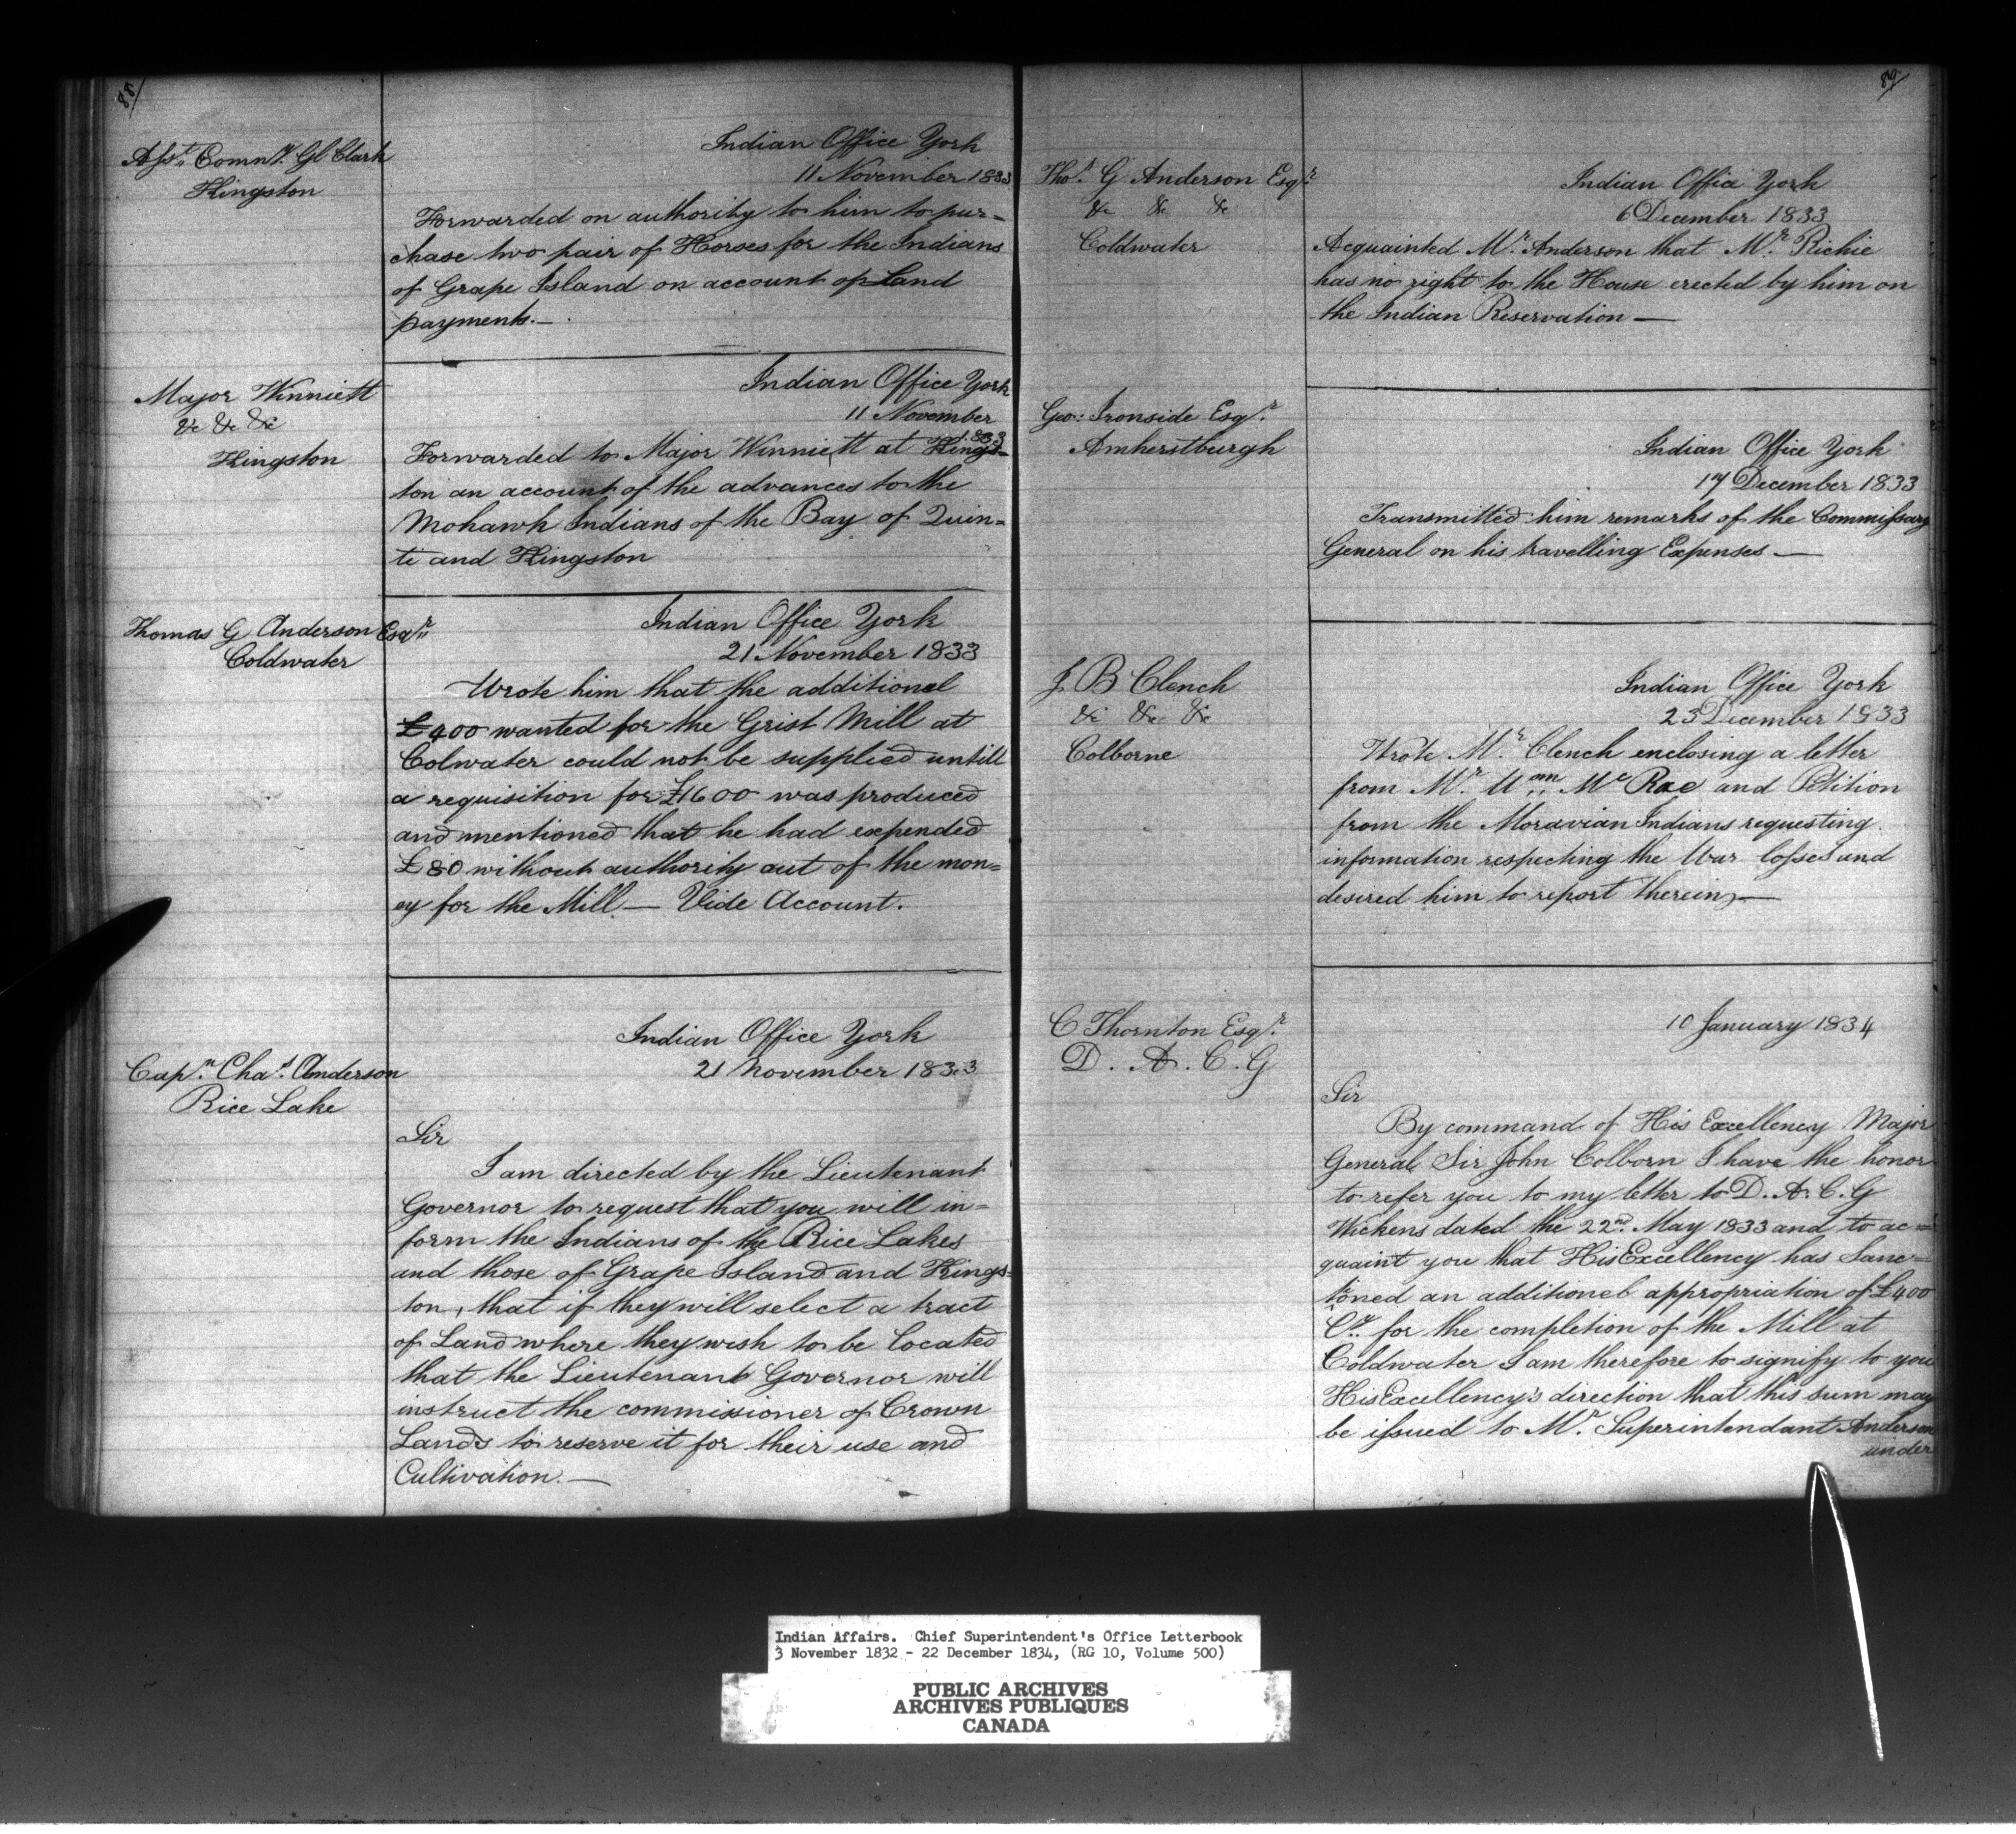 88/
Asst. Comny. Gl Clark
Kingston
Indian Office York
11 November 1833
Forwarded an authority to him to pur=
chase two pair of Horses for the Indians
of Grape Island on account of Land
payments.—
Major Winniett
&c &c &c
Kingston
Indian Office York
11 November
1833
Forwarded to Major Winniett at Kings=
ton an account of the advances to the
Mohawk Indians of the Bay of Quin=
te and Kingston
Thomas G Anderson Esqr.
Coldwater
Indian Office York
21 November 1833
Wrote him that the additional
£400 wanted for the Grist Mill at
Colwater could not be supplied untill
a requisition for £1600 was produced
and mentioned that he had expended
£80 without authority out of the mon=
ey for the Mill — Vide Account.
Capn. Chas. Anderson
Rice Lake
Indian Office York
21 November 1833
Sir
I am directed by the Lieutenant
Governor to request that you will in=
form the Indians of the Rice Lakes
and those of Grape Island and Kings=
ton, that if they will select a tract
of Land where they wish to be located
that the Lieutenant Governor will
instruct the commissioner of Crown
Lands to reserve it for their use and
Cultivation.—
89/
Thos. G Anderson Esqr.
&c &c &c
Coldwater
Indian Office York
6 December 1833
Acquainted Mr. Anderson that Mr. Richie
has no right to the House erected by him on
the Indian Reservation —
Geo: Ironside Esqr.
Amherstburgh
Indian Office York
17 December 1833
Transmitted him remarks of the Commissary
General on his travelling Expenses —
J B Clench
&c &c &c
Colborne
Indian Office York
23 December 1833
Wrote Mr. Clench enclosing a letter
from Mr. Wm. Mc Rae and Petition
from the Moravian Indians requesting
information respecting the War losses and
desired him to report therein —
C Thornton Esqr.
D. A. C. G
10 January 1834
Sir
By command of His Excellency Major
General Sir John Colborn I have the honor
to refer you to my letter to D. A. C. G
Wickens dated the 22nd. May 1833 and to ac=
quaint you that His Excellency has Sanc=
tioned an additional appropriation of £400
Cy. for the completion of the Mill at
Coldwater I am therefore to signify to you
His Excellency's direction that this sum may
be issued to Mr. Superintendant Anderson
under
Indian Affairs. Chief Superintendent's Office Letterbook
3 November 1832 - 22 December 1834, (RG 10, Volume 500)
PUBLIC ARCHIVES
ARCHIVES PUBLIQUES
CANADA